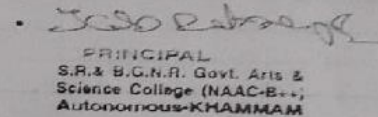 PRINCIPAL
S.R.& B.G.N.R. Govt. Arts &
Science College (NAAC-B++;
Autonomous-KHAMMAM